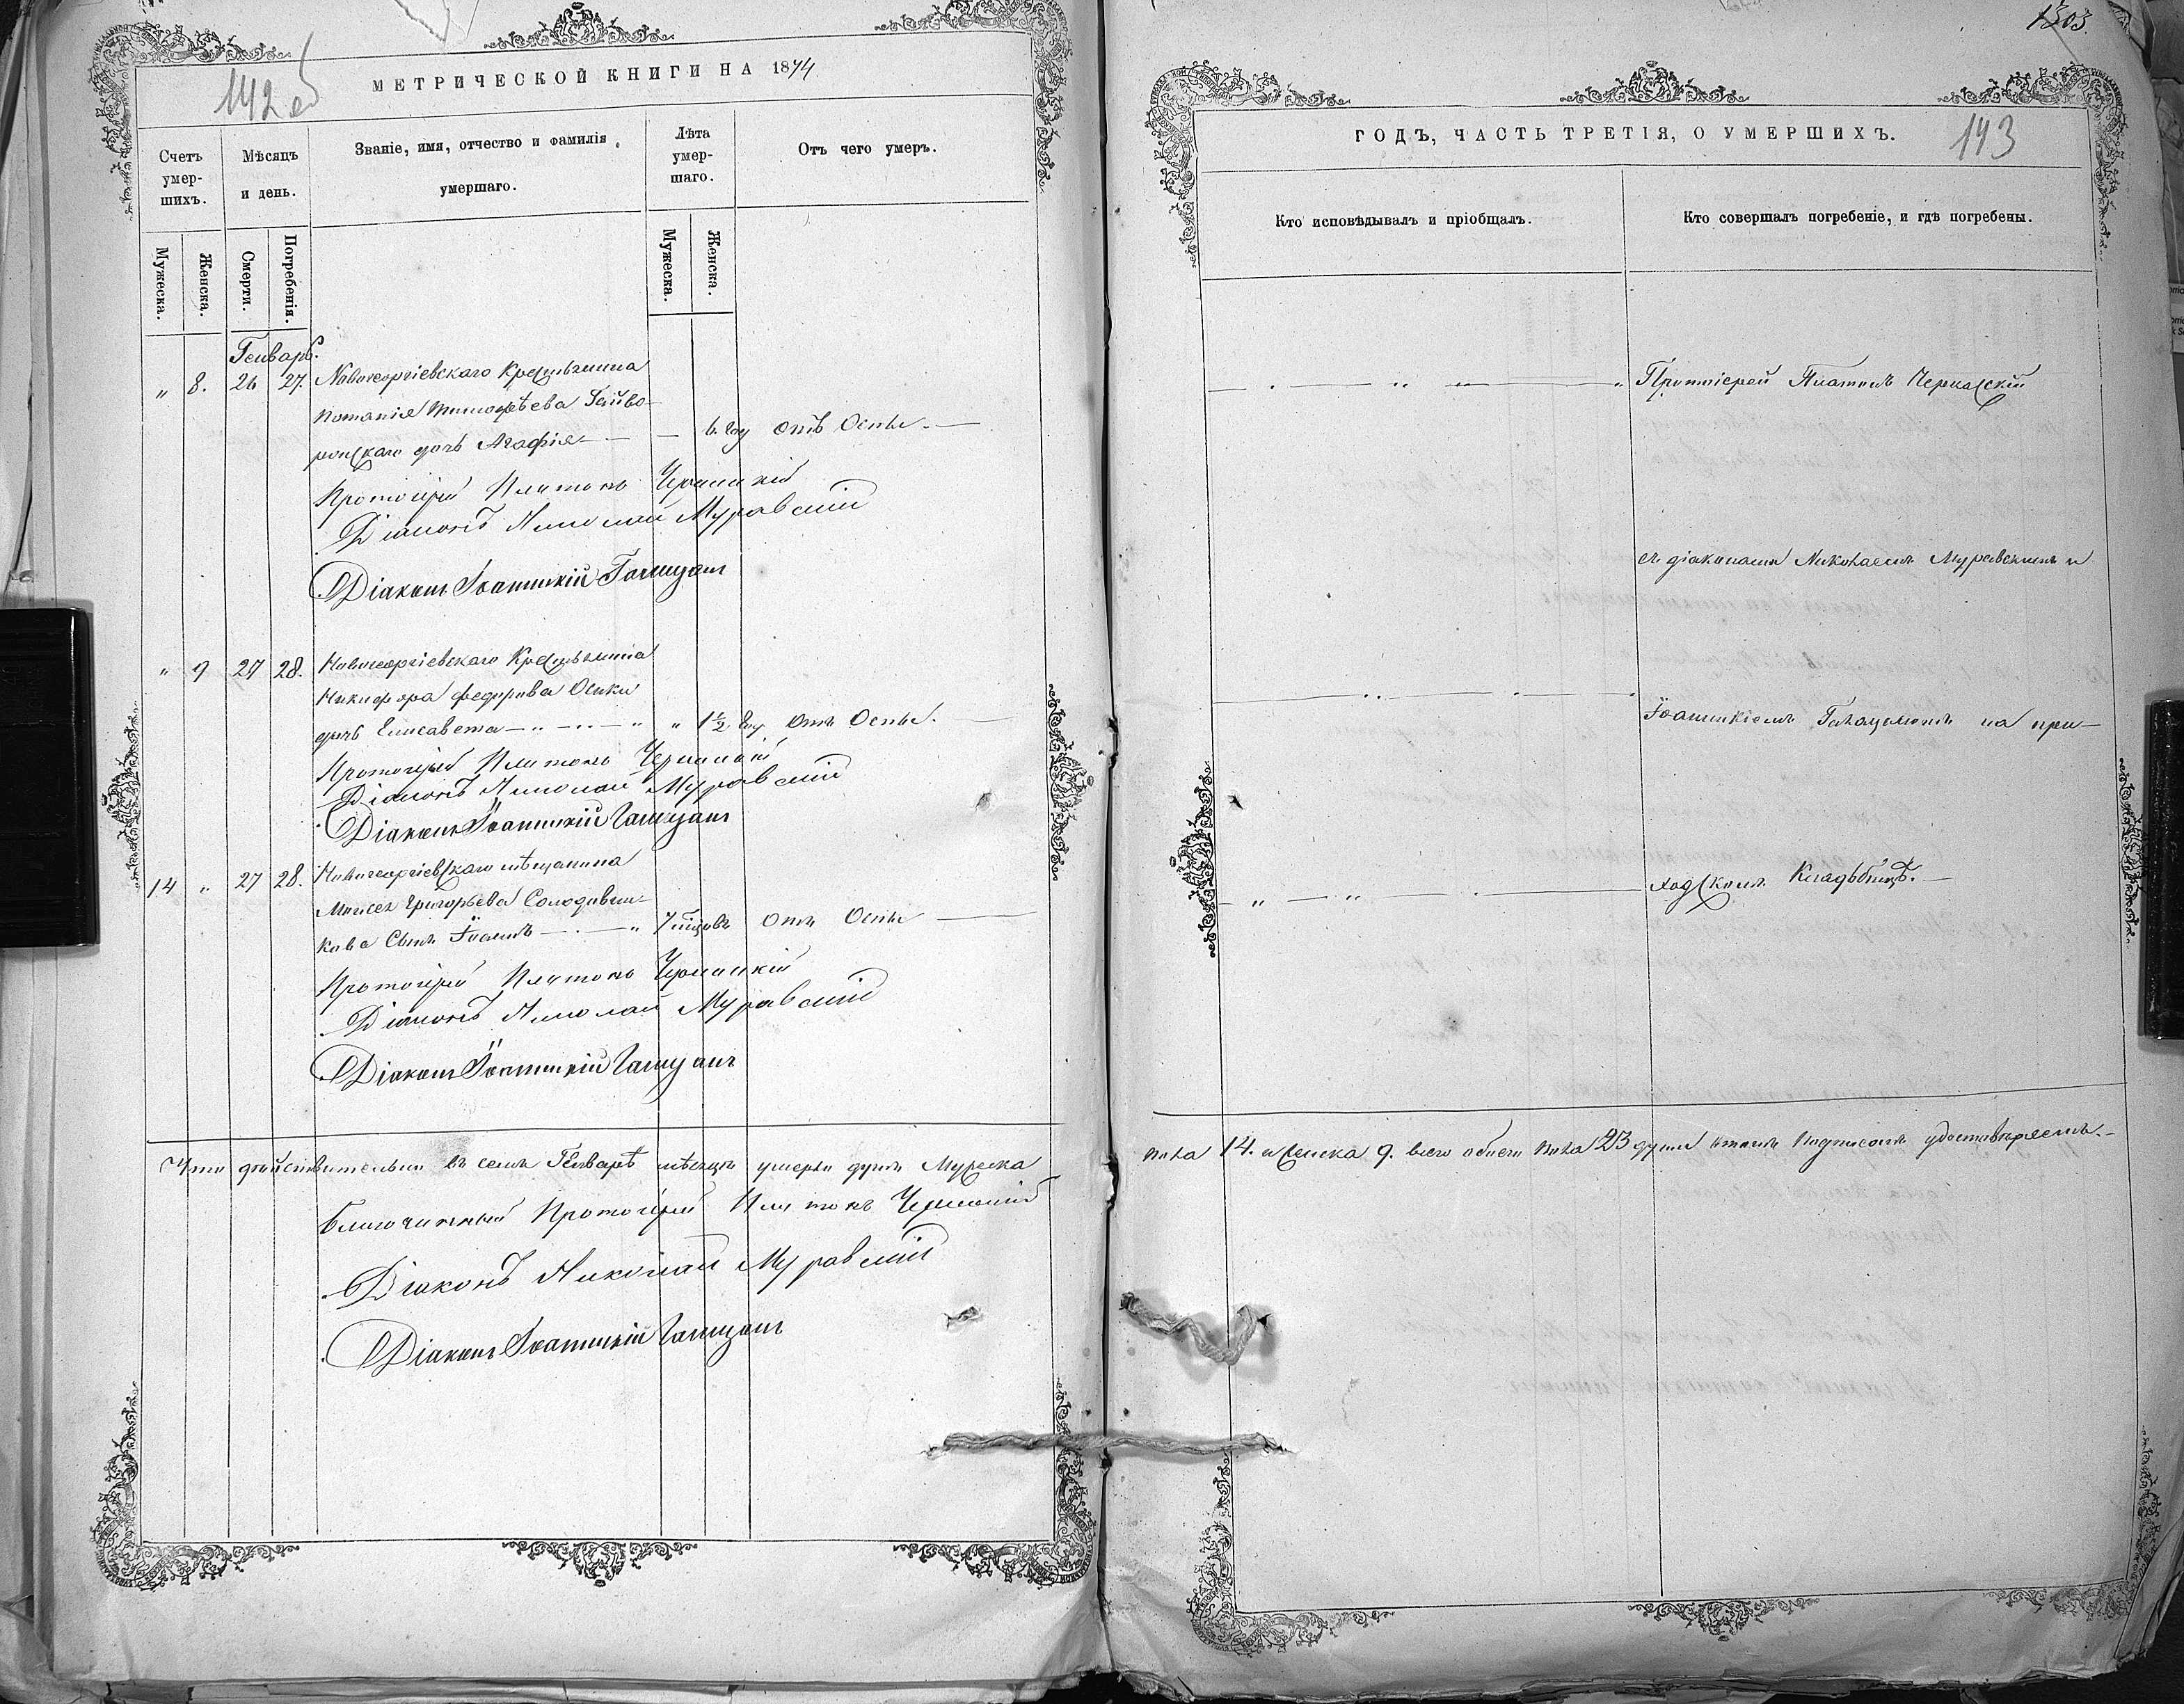 142 об
МЕТРИЧЕСКОЙ КНИГИ НА 1874
Счетъ умер-шихъ.
Мѣсяцъ и день.
Званіе, имя, отчество и фамилія умершаго.
Лѣта умер-шаго.
Отъ чего умеръ.
Мужеска.
Женска.
Смерти.
Погребенія.
Мужеска.
Женска.
Генварь.
" 8. 26 27. Новогеоргіевскаго
Потапія Тимофѣева
дочь Агафія — — 6. год отъ Оспы. —
Протоіерей Платонъ Черкасскій
Діаконъ Николай Муравскій
Діаконъ Іоанникій
" 9 27 28. Новогеоргіевскаго
Никифора Федорова Осики
дочь Елисавета — " — " — " " 1 1/2 год. отъ Оспы. —
Протоіерей Платонъ Черкасскій
Діаконъ Николай Муравскій
Діаконъ Іоанникій
14 " 27 28. Новогеоргіевскаго мѣщанина
Моисея Григорьева Солодовни-
кова Сынъ Іоаннъ — " 7 отъ Оспы —
Протоіерей Платонъ Черкасскій
Діаконъ Николай Муравскій
Діаконъ Іоанникій
Что дѣйствительно въ семъ Генварѣ мѣсяцѣ умерло душъ Мужеска
Благочинный Протоіерей Платонъ Черкасскій
Діаконъ Николай Муравскій
Діаконъ Іоанникій
1303.
ГОДЪ, ЧАСТЬ ТРЕТІЯ, О УМЕРШИХЪ.
143
Кто исповѣдывалъ и пріобщалъ.
Кто совершалъ погребеніе, и гдѣ погребены.
Протоіерей Платонъ Черкасскій
съ діаконами Николаемъ Муравскимъ и
Іоанникіемъ на при-
ходскомъ Кладбищѣ.
пола 14. и Женска 9. всего обоего пола 23 души въ томъ подписомъ удостовѣряемъ.